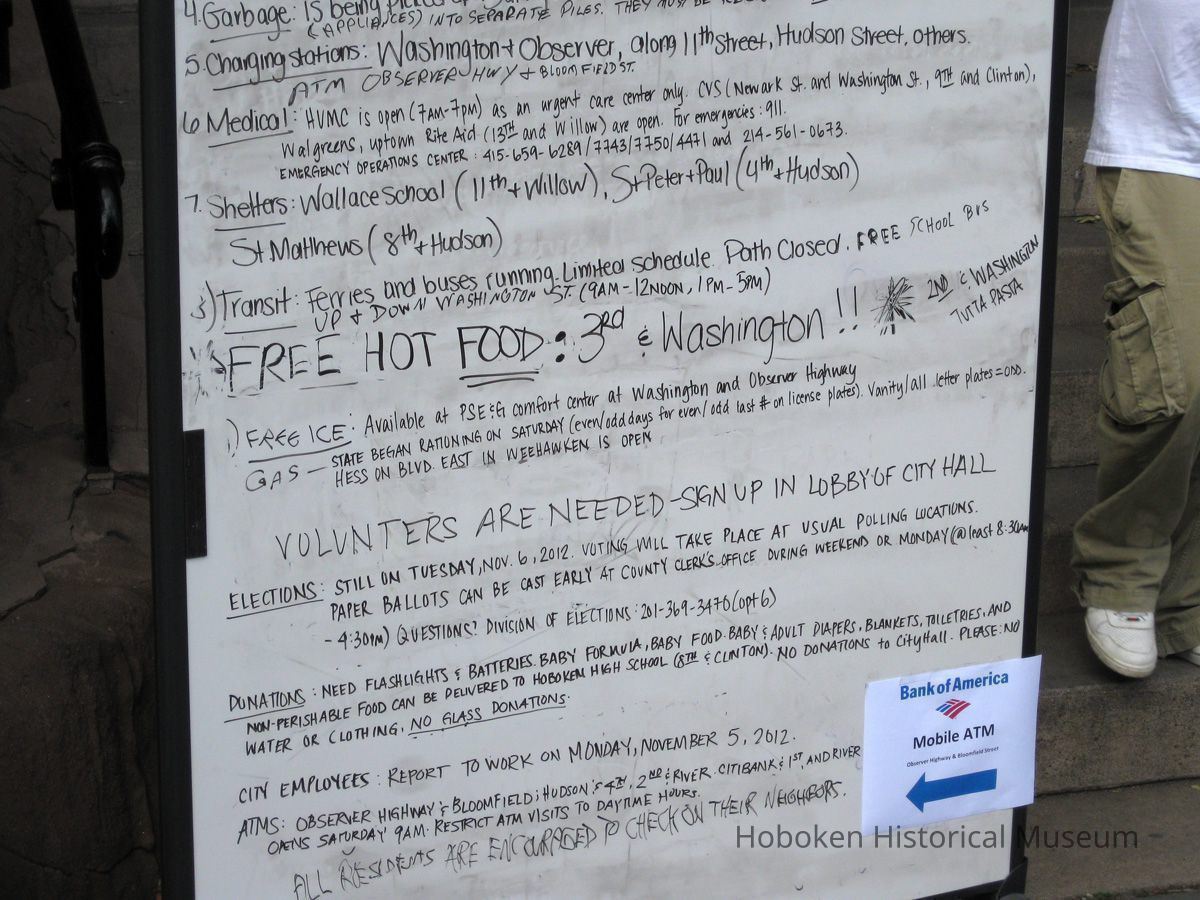 4. Garbage: Is being picked up
(APPLIANCES) INTO SEPARATE PILES. THEY MUST BE
5. Charging stations: Washington + Observer, along 11th Street, Hudson Street, others.
ATM OBSERVER HWY + BLOOMFIELD ST.
6 Medical: HUMC is open (7AM-7PM) as an urgent care center only. CVS (Newark St. and Washington St., 9TH and Clinton),
Walgreens, uptown Rite Aid (13TH and Willow) are open. For emergencies: 911.
EMERGENCY OPERATIONS CENTER: 415-659-6289/7743/7750/4471 and 214-561-0673.
7. Shelters: Wallace School (11th + Willow), St Peter + Paul (4th + Hudson)
St Matthews (8th + Hudson)
8) Transit: Ferries and buses running. Limited schedule. Path Closed. FREE SCHOOL BUS
UP + DOWN WASHINGTON ST. (9AM-12NOON, 1PM-5PM)
FREE HOT FOOD: 3RD & Washington!!
2ND & WASHINGTON
TUTTA PASTA
) FREE ICE: Available at PSE&G comfort center at Washington and Observer Highway
GAS — STATE BEGAN RATIONING ON SATURDAY (even/odd days for even/odd last # on license plates). Vanity/all letter plates = ODD.
HESS ON BLVD. EAST IN WEEHAWKEN IS OPEN
VOLUNTERS ARE NEEDED - SIGN UP IN LOBBY OF CITY HALL
ELECTIONS: STILL ON TUESDAY, NOV. 6, 2012. VOTING WILL TAKE PLACE AT USUAL POLLING LOCATIONS.
PAPER BALLOTS CAN BE CAST EARLY AT COUNTY CLERK'S OFFICE DURING WEEKEND OR MONDAY (@least 8:30am
- 4:30pm) QUESTIONS? DIVISION OF ELECTIONS: 201-369-3470 (opt 6)
DONATIONS: NEED FLASHLIGHTS & BATTERIES. BABY FORMULA, BABY FOOD. BABY & ADULT DIAPERS, BLANKETS, TOILETRIES, AND
NON-PERISHABLE FOOD CAN BE DELIVERED TO HOBOKEN HIGH SCHOOL (8TH & CLINTON). NO DONATIONS to City Hall. PLEASE: NO
WATER OR CLOTHING, NO GLASS DONATIONS.
CITY EMPLOYEES: REPORT TO WORK ON MONDAY, NOVEMBER 5, 2012.
ATMS: OBSERVER HIGHWAY & BLOOMFIELD; HUDSON & 4TH, 2ND & RIVER. CITIBANK & 1ST, AND RIVER
OPENS SATURDAY 9AM. RESTRICT ATM VISITS TO DAYTIME HOURS.
ALL RESIDENTS ARE ENCOURAGED TO CHECK ON THEIR NEIGHBORS.
Bank of America
Mobile ATM
Observer Highway & Bloomfield Street
Hoboken Historical Museum